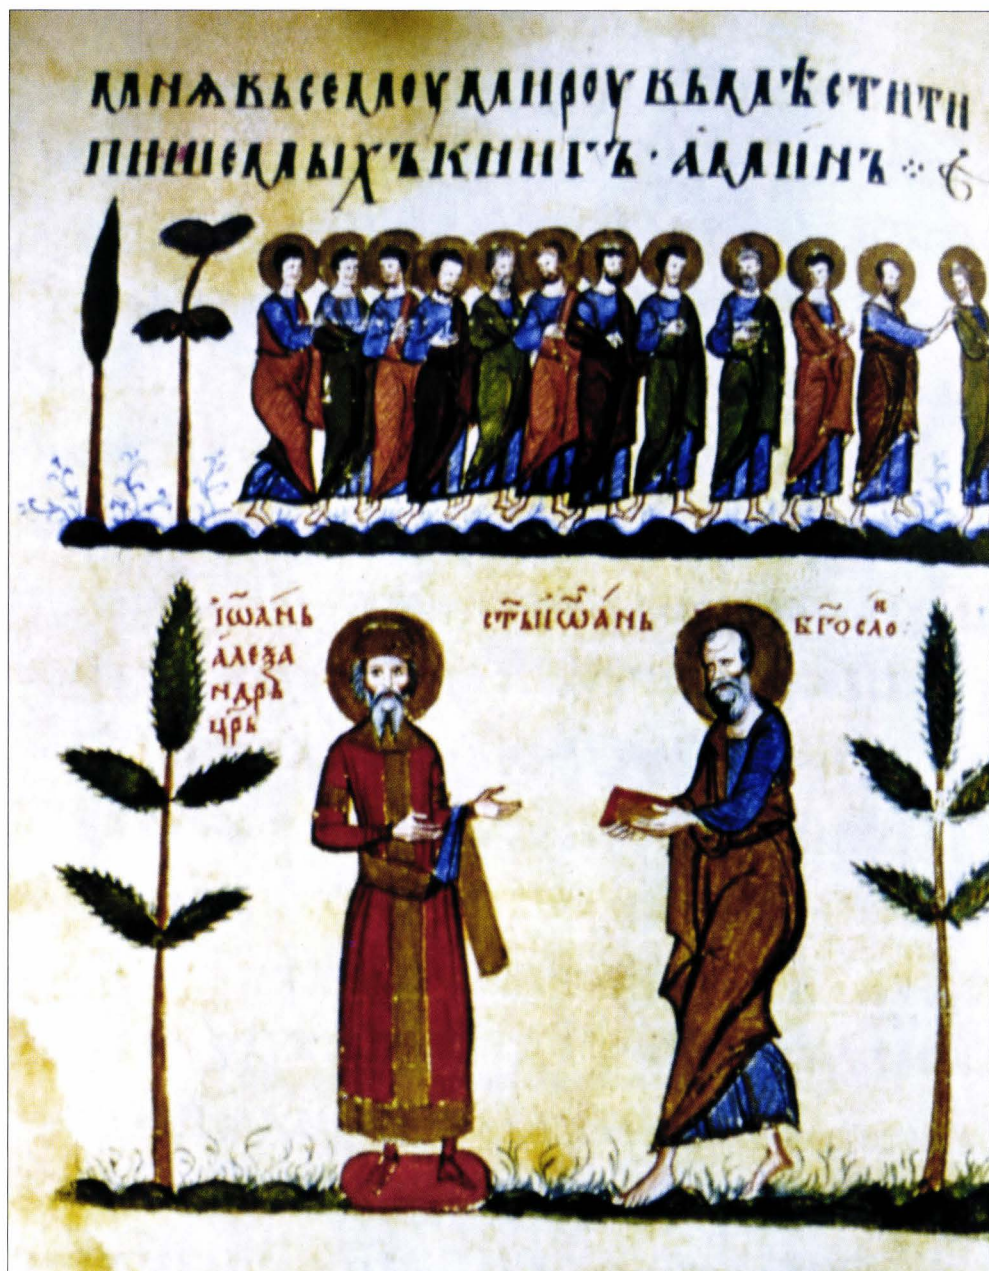 мнѧ вьсемоу мироу вьмѣстити
пишемыхъ книгъ · а́ми́нъ ⁘
їѡ҃а́нь
а́леѯа
ндрь
цр҃ь
ст҃ыи їѡ҃а́нь бг҃ослоⷡ: